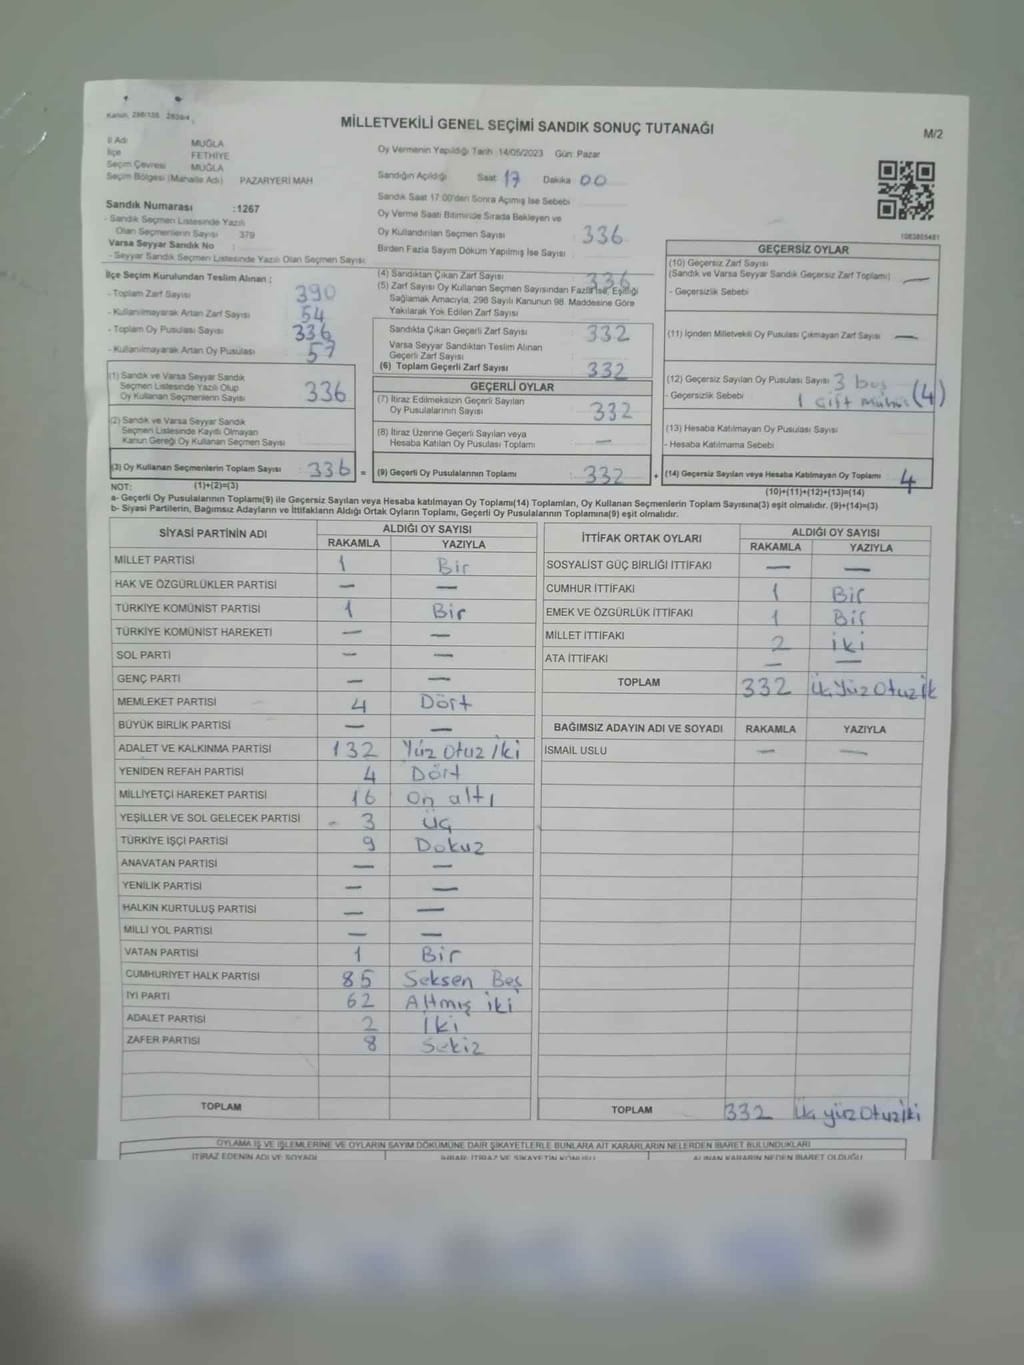 Kanun, 298/105 2839/4
MİLLETVEKİLİ GENEL SEÇİMİ SANDIK SONUÇ TUTANAĞI
M/2
İl Adı MUĞLA
İlçe FETHİYE
Seçim Çevresi MUĞLA
Seçim Bölgesi (Mahalle Adı) PAZARYERİ MAH
Sandık Numarası :1267
- Sandık Seçmen Listesinde Yazılı
Olan Seçmenlerin Sayısı 379
Varsa Seyyar Sandık No
- Seyyar Sandık Seçmen Listesinde Yazılı Olan Seçmen Sayısı:
Oy Vermenin Yapıldığı Tarih 14/05/2023 Gün: Pazar
Sandığın Açıldığı Saat 17 Dakika 00
Sandık Saat 17:00'den Sonra Açımış İse Sebebi
Oy Verme Saati Bitiminde Sırada Bekleyen ve
Oy Kullandırılan Seçmen Sayısı 336
Birden Fazla Sayım Döküm Yapılmış İse Sayısı
1083865481
İlçe Seçim Kurulundan Teslim Alınan ;
- Toplam Zarf Sayısı 390
- Kullanılmayarak Artan Zarf Sayısı 54
- Toplam Oy Pusulası Sayısı 336
- Kullanılmayarak Artan Oy Pusulası 57
(1) Sandık ve Varsa Seyyar Sandık
Seçmen Listesinde Yazılı Olup
Oy Kullanan Seçmenlerin Sayısı 336
(2) Sandık ve Varsa Seyyar Sandık
Seçmen Listesinde Kaydı Olmayan
Kanun Gereği Oy Kullanan Seçmen Sayısı
(3) Oy Kullanan Seçmenlerin Toplam Sayısı 336 =
(1)+(2)=(3)
(4) Sandıktan Çıkan Zarf Sayısı 336
(5) Zarf Sayısı Oy Kullanan Seçmen Sayısından Fazla İse, Eşitliği
Sağlamak Amacıyla, 298 Sayılı Kanunun 98. Maddesine Göre
Yakılarak Yok Edilen Zarf Sayısı
Sandıkta Çıkan Geçerli Zarf Sayısı 332
Varsa Seyyar Sandıktan Teslim Alınan
Geçerli Zarf Sayısı
(6) Toplam Geçerli Zarf Sayısı 332
GEÇERLİ OYLAR
(7) İtiraz Edilmeksizin Geçerli Sayılan
Oy Pusulalarının Sayısı 332
(8) İtiraz Üzerine Geçerli Sayılan veya
Hesaba Katılan Oy Pusulası Toplamı —
(9) Geçerli Oy Pusulalarının Toplamı : 332 +
GEÇERSİZ OYLAR
(10) Geçersiz Zarf Sayısı
(Sandık ve Varsa Seyyar Sandık Geçersiz Zarf Toplamı) —
- Geçersizlik Sebebi
(11) İçinden Milletvekili Oy Pusulası Çıkmayan Zarf Sayısı —
(12) Geçersiz Sayılan Oy Pusulası Sayısı 3 boş (4)
- Geçersizlik Sebebi 1 Çift Mühür
(13) Hesaba Katılmayan Oy Pusulası Sayısı
- Hesaba Katılmama Sebebi
(14) Geçersiz Sayılan veya Hesaba Katılmayan Oy Toplamı 4
(10)+(11)+(12)+(13)=(14)
NOT:
a- Geçerli Oy Pusulalarının Toplamı(9) ile Geçersiz Sayılan veya Hesaba katılmayan Oy Toplamı(14) Toplamları, Oy Kullanan Seçmenlerin Toplam Sayısına(3) eşit olmalıdır. (9)+(14)=(3)
b- Siyasi Partilerin, Bağımsız Adayların ve İttifakların Aldığı Ortak Oyların Toplamı, Geçerli Oy Pusulalarının Toplamına(9) eşit olmalıdır.
SİYASİ PARTİNİN ADI ALDIĞI OY SAYISI
RAKAMLA YAZIYLA
MİLLET PARTİSİ 1 Bir
HAK VE ÖZGÜRLÜKLER PARTİSİ — —
TÜRKİYE KOMÜNİST PARTİSİ 1 Bir
TÜRKİYE KOMÜNİST HAREKETİ — —
SOL PARTİ — —
GENÇ PARTİ — —
MEMLEKET PARTİSİ 4 Dört
BÜYÜK BİRLİK PARTİSİ — —
ADALET VE KALKINMA PARTİSİ 132 Yüz Otuz İki
YENİDEN REFAH PARTİSİ 4 Dört
MİLLİYETÇİ HAREKET PARTİSİ 16 On altı
YEŞİLLER VE SOL GELECEK PARTİSİ 3 üç
TÜRKİYE İŞÇİ PARTİSİ 9 Dokuz
ANAVATAN PARTİSİ — —
YENİLİK PARTİSİ — —
HALKIN KURTULUŞ PARTİSİ — —
MİLLİ YOL PARTİSİ — —
VATAN PARTİSİ 1 Bir
CUMHURİYET HALK PARTİSİ 85 Seksen Beş
İYİ PARTİ 62 Altmış iki
ADALET PARTİSİ 2 İki
ZAFER PARTİSİ 8 Sekiz
TOPLAM
İTTİFAK ORTAK OYLARI ALDIĞI OY SAYISI
RAKAMLA YAZIYLA
SOSYALİST GÜÇ BİRLİĞİ İTTİFAKI — —
CUMHUR İTTİFAKI 1 Bir
EMEK VE ÖZGÜRLÜK İTTİFAKI 1 Bir
MİLLET İTTİFAKI 2 iki
ATA İTTİFAKI — —
TOPLAM 332 üç yüz Otuz ik
BAĞIMSIZ ADAYIN ADI VE SOYADI RAKAMLA YAZIYLA
İSMAİL USLU — —
TOPLAM 332 üç yüz Otuz iki
OYLAMA İŞ VE İŞLEMLERİNE VE OYLARIN SAYIM DÖKÜMÜNE DAİR ŞİKAYETLERLE BUNLARA AİT KARARLARIN NELERDEN İBARET BULUNDUKLARI
İTİRAZ EDENİN ADI VE SOYADI İHBAR, İTİRAZ VE ŞİKAYETİN KONUSU ALINAN KARARIN NEDEN İBARET OLDUĞU